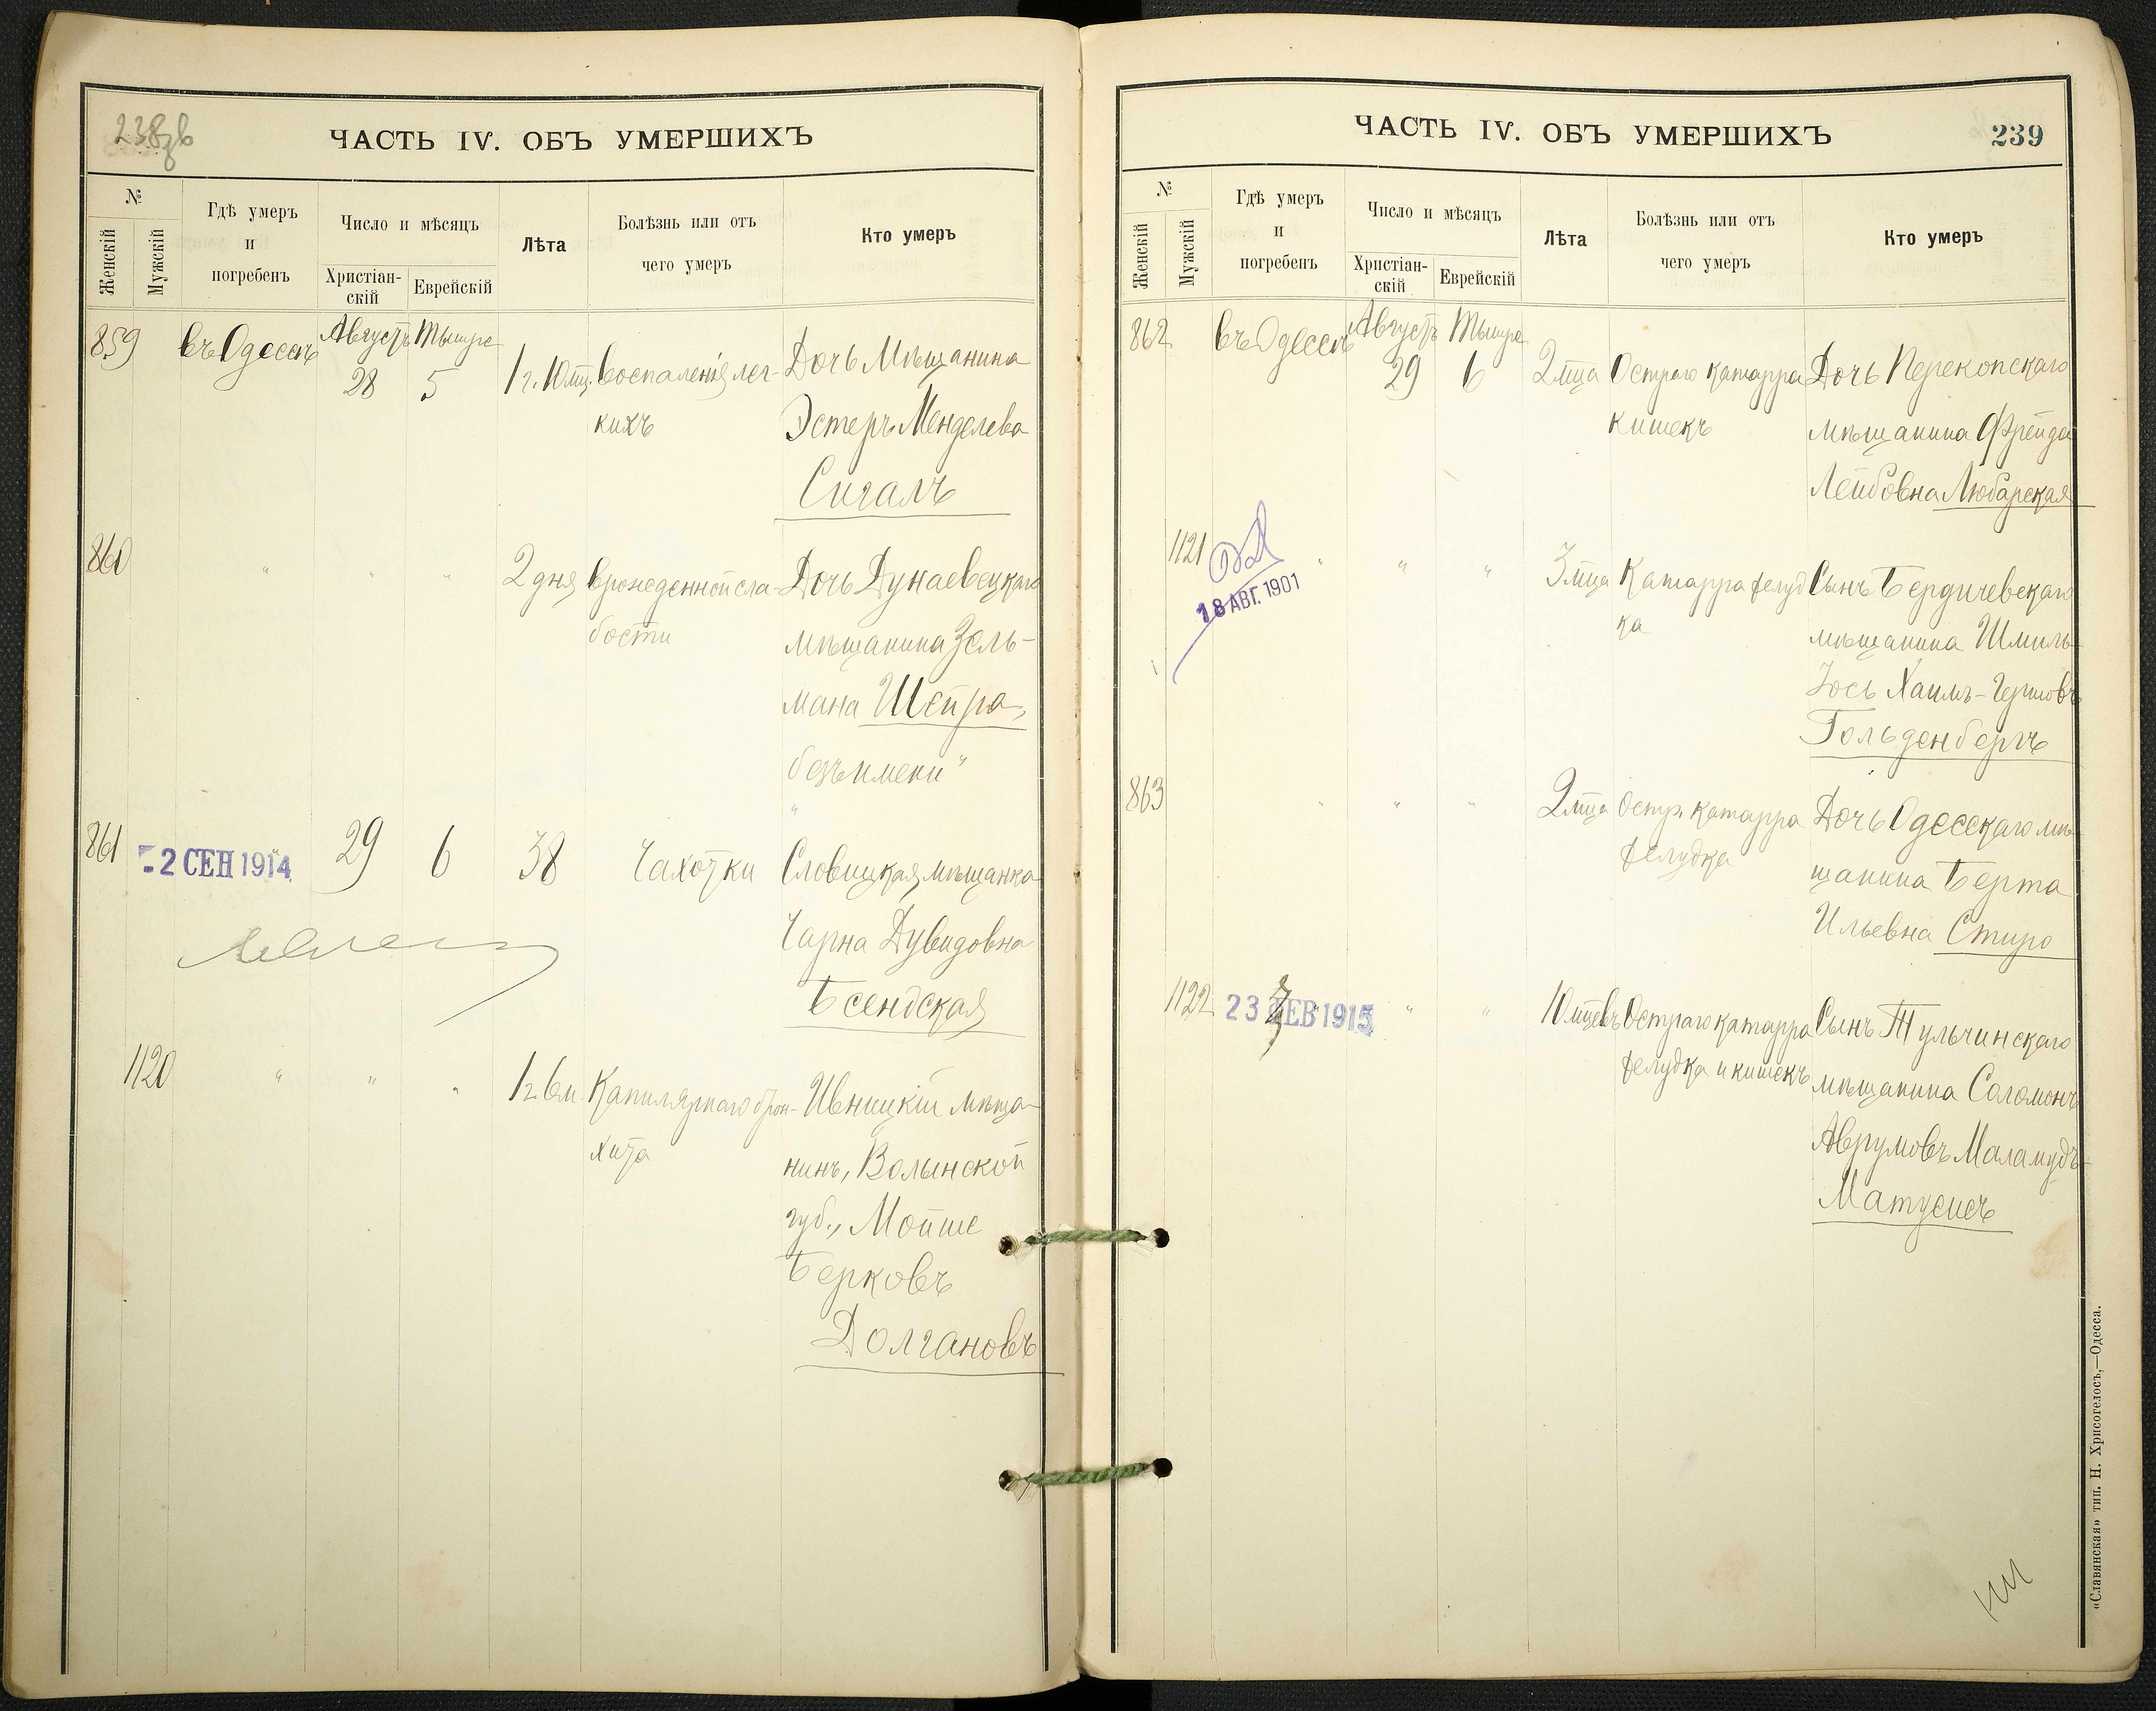 238об
ЧАСТЬ IV. ОБЪ УМЕРШИХЪ
№
Женскій
Мужскій
Гдѣ умеръ
и
погребенъ
Число и мѣсяцъ
Христіан-
скій
Еврейскій
Лѣта
Болѣзнь или отъ
чего умеръ
Кто умеръ
859
въ Одессѣ
Августъ
28
Тышре
5
1 г. 10 мц.
воспаленія лег-
кихъ
Дочь Мѣщанина
Эстеръ Менделева
Сигалъ
860
" " "
2 дня
врожденной сла-
бости
Дочь Дунаевецкаго
мѣщанина Зель-
мана Шейра,
безъ имени"
861
-2 СЕН 1914
29
6
38
Чахотки
Словицкая мѣщанка
Чарна Дувидовна
Бсендская
1120
" " "
1 г. 6 м.
Капилярнаго брон-
хита
Ивницкій мѣща-
нинъ, Волынской
губ., Мойше
Берковъ
Долгановъ
ЧАСТЬ IV. ОБЪ УМЕРШИХЪ
239
№
Женскій
Мужскій
Гдѣ умеръ
и
погребенъ
Число и мѣсяцъ
Христіан-
скій
Еврейскій
Лѣта
Болѣзнь или отъ
чего умеръ
Кто умеръ
862
въ Одессѣ
Августъ
29
Тышре
6
2 мца
Остраго катарра
кишекъ
Дочь Перекопскаго
мѣщанина Фрейда
Лейбовна Любарская
1121
18 АВГ. 1901
" " "
3 мца
Катарра желуд
ка
Сынъ Бердичевскаго
мѣщанина Шмиль-
Іось Хаимъ-Гершовъ
Гольденбергъ
863
" " "
2 мца
Остр. катарра
желудка
Дочь Одесскаго мѣ-
щанина Берта
Ильевна Стиро
1122
23 ФЕВ 1915
" "
10 мцевъ
Остраго катарра
желудка и кишекъ
Сынъ Тульчинскаго
мѣщанина Соломонъ
Аврумовъ Маламудъ-
Матусисъ
«Славянская» тип. Н. Хрисогелосъ,—Одесса.